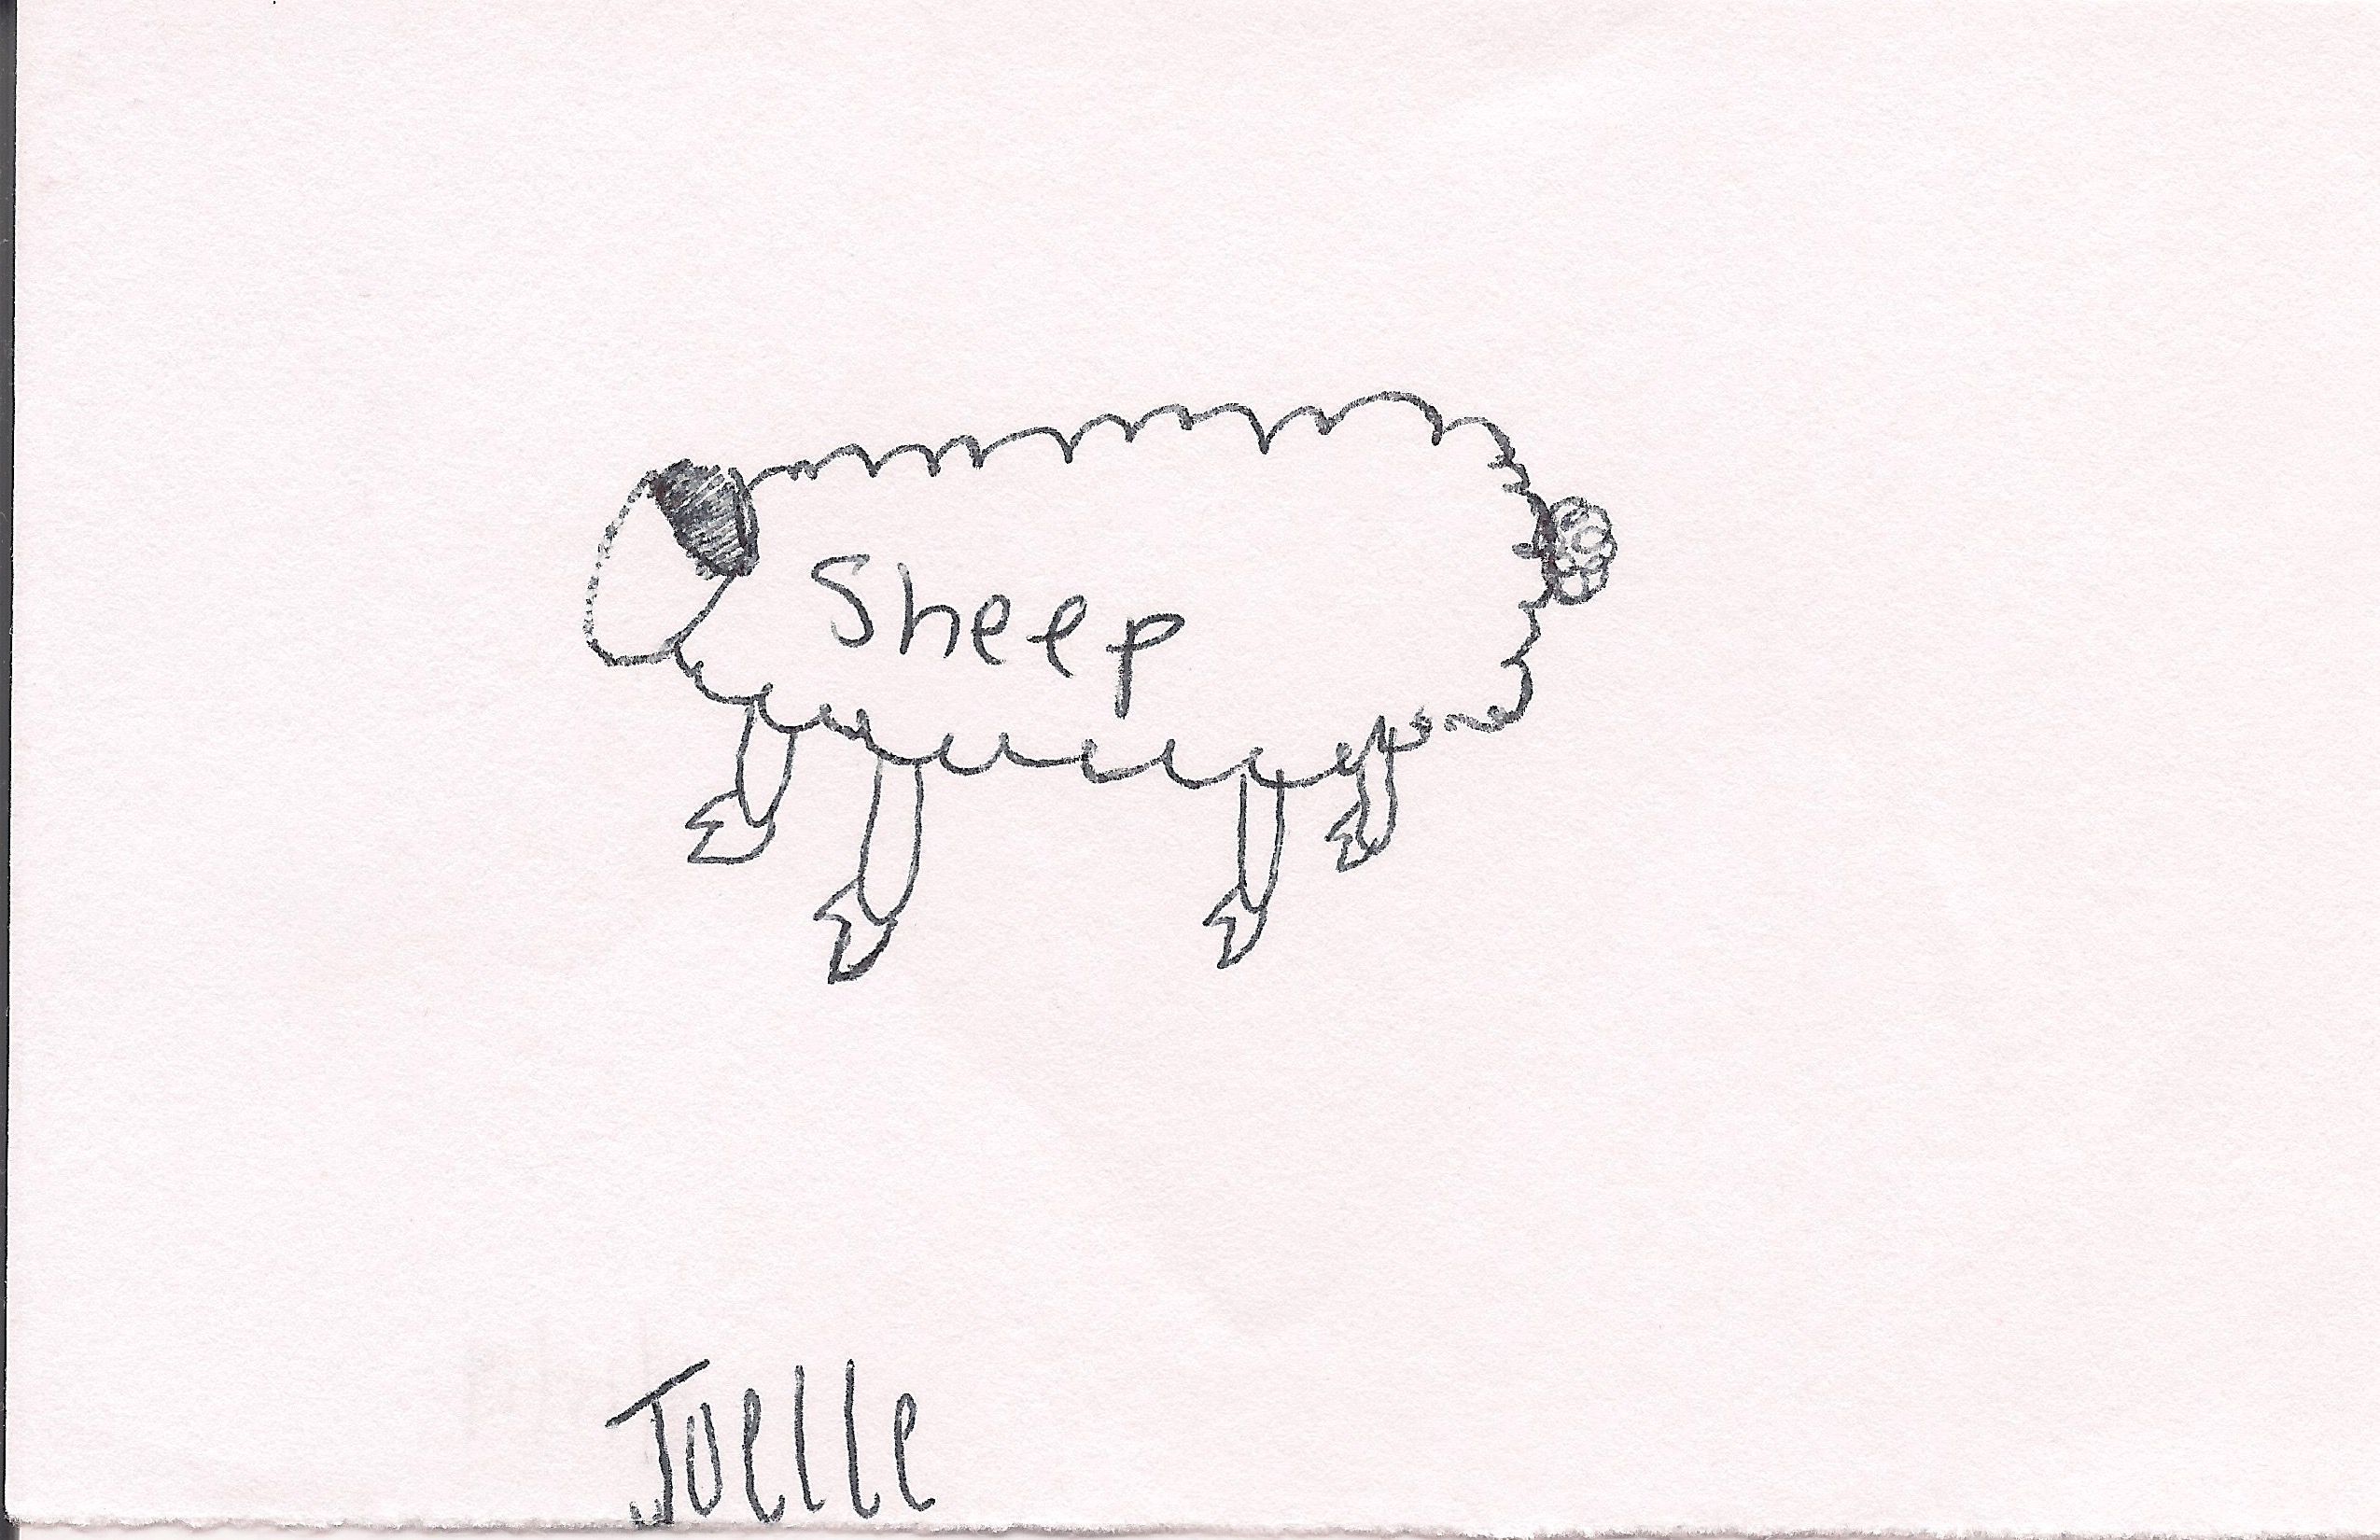 Sheep
Joelle